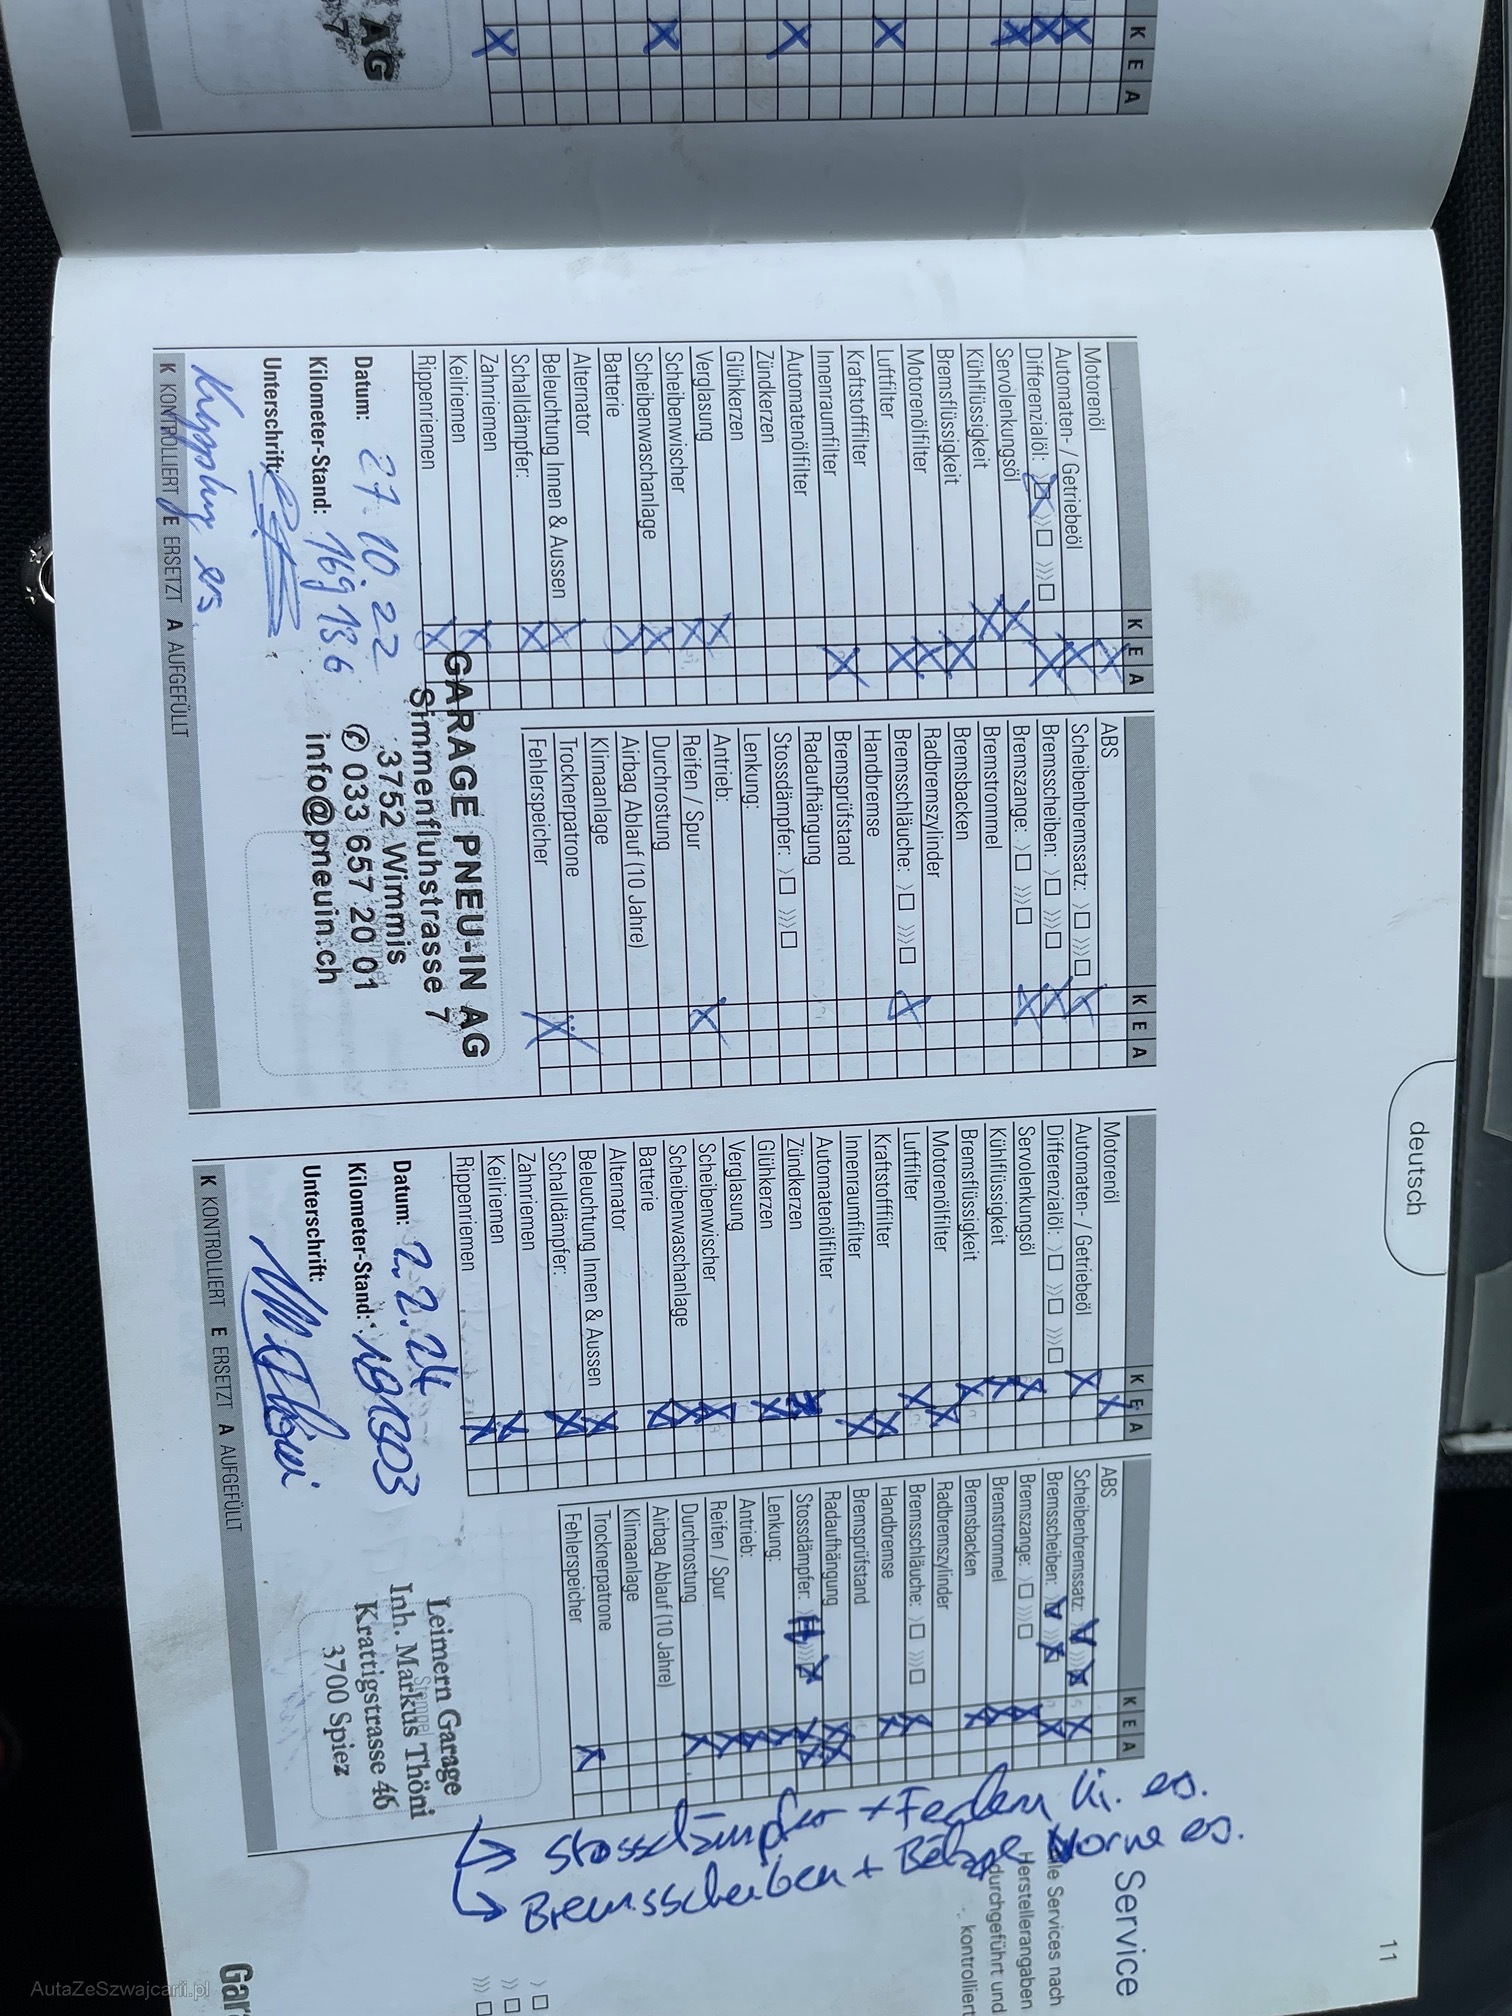 AG
7
K E A
deutsch
11
Motorenöl
Automaten- / Getriebeöl
Differenzialöl: 〉 〉〉 〉〉〉
Servolenkungsöl
Kühlflüssigkeit
Bremsflüssigkeit
Motorenölfilter
Luftfilter
Kraftstofffilter
Innenraumfilter
Automatenölfilter
Zündkerzen
Glühkerzen
Verglasung
Scheibenwischer
Scheibenwaschanlage
Batterie
Alternator
Beleuchtung Innen & Aussen
Schalldämpfer:
Zahnriemen
Keilriemen
Rippenriemen
Datum: 27 10. 22
Kilometer-Stand: 169 136
Unterschrift:
K KONTROLLIERT E ERSETZT A AUFGEFÜLLT
K E A
ABS
Scheibenbremssatz: 〉 〉〉〉
Bremsscheiben: 〉 〉〉〉
Bremszange: 〉 〉〉〉
Bremstrommel
Bremsbacken
Radbremszylinder
Bremsschläuche: 〉 〉〉〉
Handbremse
Bremsprüfstand
Radaufhängung
Stossdämpfer: 〉 〉〉〉
Lenkung:
Antrieb:
Reifen / Spur
Durchrostung
Airbag Ablauf (10 Jahre)
Klimaanlage
Trocknerpatrone
Fehlerspeicher
K E A
GARAGE PNEU-IN AG
Simmenfluhstrasse 7
3752 Wimmis
✆ 033 657 20 01
info@pneuin.ch
Motorenöl
Automaten- / Getriebeöl
Differenzialöl: 〉 〉〉 〉〉〉
Servolenkungsöl
Kühlflüssigkeit
Bremsflüssigkeit
Motorenölfilter
Luftfilter
Kraftstofffilter
Innenraumfilter
Automatenölfilter
Zündkerzen
Glühkerzen
Verglasung
Scheibenwischer
Scheibenwaschanlage
Batterie
Alternator
Beleuchtung Innen & Aussen
Schalldämpfer:
Zahnriemen
Keilriemen
Rippenriemen
Datum: 2.2.24
Kilometer-Stand:
Unterschrift:
K KONTROLLIERT E ERSETZT A AUFGEFÜLLT
K E A
ABS
Scheibenbremssatz:
Bremsscheiben:
Bremszange: 〉 〉〉〉
Bremstrommel
Bremsbacken
Radbremszylinder
Bremsschläuche: 〉 〉〉〉
Handbremse
Bremsprüfstand
Radaufhängung
Stossdämpfer:
Lenkung:
Antrieb:
Reifen / Spur
Durchrostung
Airbag Ablauf (10 Jahre)
Klimaanlage
Trocknerpatrone
Fehlerspeicher
K E A
Stempel
Leimern Garage
Inh. Markus Thöni
Krattigstrasse 46
3700 Spiez
Stossdämpfer + Federn hi. es.
Bremsscheiben + Beläge Vorne es.
Service
Services nach
Herstellerangaben
durchgeführt und
kontrolliert
Gar
AutaZeSzwajcarii.pl